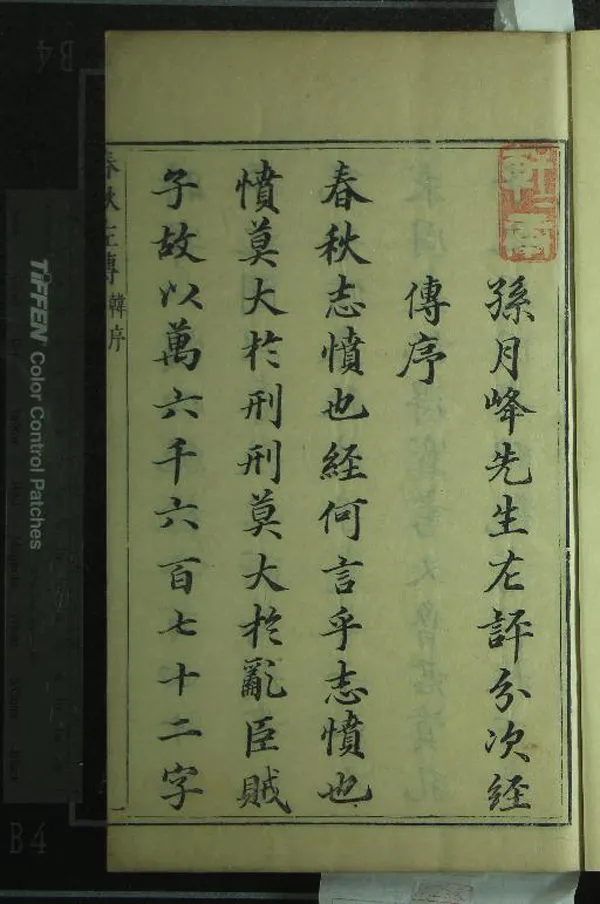 孫月峰先生左評分次經
傳序
春秋志憤也経何言乎志憤也
憤莫大於刑刑莫大於亂臣賊
子故以萬六千六百七十二字
春秋左傳 韓序
TIFFEN Color Control Patches
B4
B4